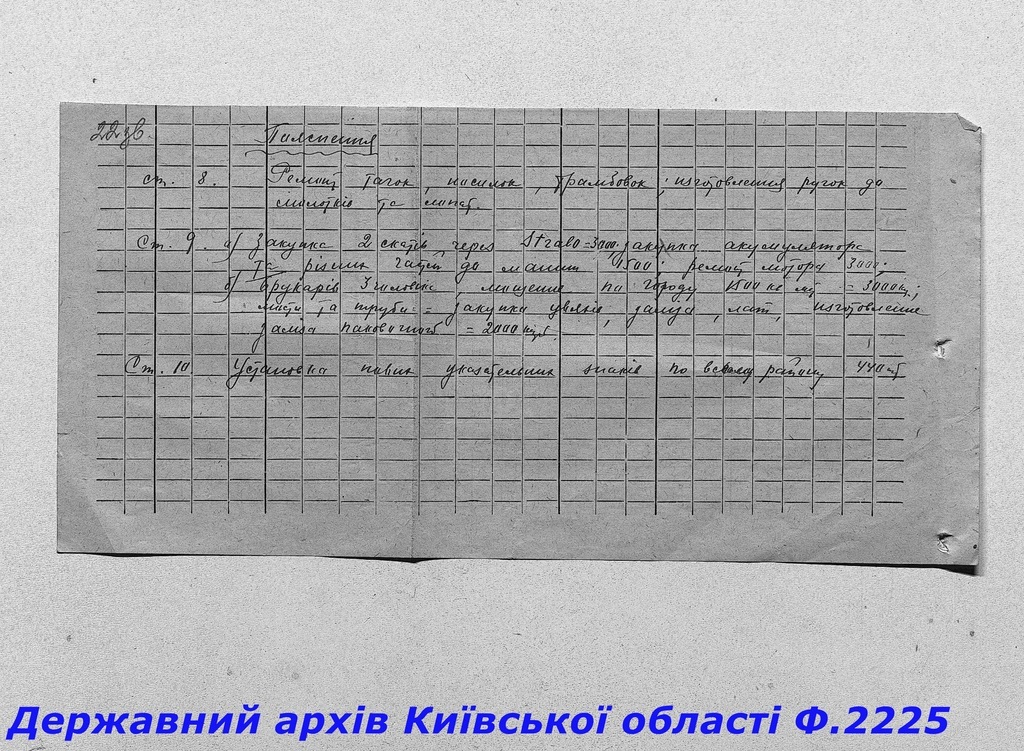 22 зв.
Пояснення
ст. 8. Ремонт тачок, носилок, трамбовок; изготовлення ручок до
молотків та лопат.
Ст. 9. а) Закупка 2 скатів через Strabo = 3000; закупка акумулятора
та різних частей до машин 4500; ремонт мотора 3000;
б) брукарів 3 чоловіка мощение по городу 1500 кв мт = 3000
та труби = закупка заліза, лат, изготовление
заліза = 2000
Ст. 10 Установка нових указательних знаків по всьому району 440
Державний архів Київської області Ф.2225